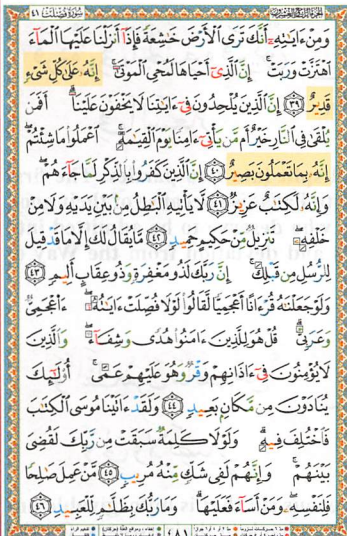 سورة فصلت ٤١
وَمِنْ ءَايَٰتِهِۦٓ أَنَّكَ تَرَى ٱلْأَرْضَ خَٰشِعَةً فَإِذَآ أَنزَلْنَا عَلَيْهَا ٱلْمَآءَ
ٱهْتَزَّتْ وَرَبَتْ ۚ إِنَّ ٱلَّذِىٓ أَحْيَاهَا لَمُحْىِ ٱلْمَوْتَىٰٓ ۚ إِنَّهُۥ عَلَىٰ كُلِّ شَىْءٍ
قَدِيرٌ ٣٩ إِنَّ ٱلَّذِينَ يُلْحِدُونَ فِىٓ ءَايَٰتِنَا لَا يَخْفَوْنَ عَلَيْنَآ ۗ أَفَمَن
يُلْقَىٰ فِى ٱلنَّارِ خَيْرٌ أَم مَّن يَأْتِىٓ ءَامِنًا يَوْمَ ٱلْقِيَٰمَةِ ۚ ٱعْمَلُوا۟ مَا شِئْتُمْ ۖ
إِنَّهُۥ بِمَا تَعْمَلُونَ بَصِيرٌ ٤٠ إِنَّ ٱلَّذِينَ كَفَرُوا۟ بِٱلذِّكْرِ لَمَّا جَآءَهُمْ ۖ
وَإِنَّهُۥ لَكِتَٰبٌ عَزِيزٌ ٤١ لَّا يَأْتِيهِ ٱلْبَٰطِلُ مِنۢ بَيْنِ يَدَيْهِ وَلَا مِنْ
خَلْفِهِۦ ۖ تَنزِيلٌ مِّنْ حَكِيمٍ حَمِيدٍ ٤٢ مَّا يُقَالُ لَكَ إِلَّا مَا قَدْ قِيلَ
لِلرُّسُلِ مِن قَبْلِكَ ۚ إِنَّ رَبَّكَ لَذُو مَغْفِرَةٍ وَذُو عِقَابٍ أَلِيمٍ ٤٣
وَلَوْ جَعَلْنَٰهُ قُرْءَانًا أَعْجَمِيًّا لَّقَالُوا۟ لَوْلَا فُصِّلَتْ ءَايَٰتُهُۥٓ ۖ ءَا۬عْجَمِىٌّ
وَعَرَبِىٌّ ۗ قُلْ هُوَ لِلَّذِينَ ءَامَنُوا۟ هُدًى وَشِفَآءٌ ۖ وَٱلَّذِينَ
لَا يُؤْمِنُونَ فِىٓ ءَاذَانِهِمْ وَقْرٌ وَهُوَ عَلَيْهِمْ عَمًى ۚ أُو۟لَٰٓئِكَ
يُنَادَوْنَ مِن مَّكَانٍۭ بَعِيدٍ ٤٤ وَلَقَدْ ءَاتَيْنَا مُوسَى ٱلْكِتَٰبَ
فَٱخْتُلِفَ فِيهِ ۗ وَلَوْلَا كَلِمَةٌ سَبَقَتْ مِن رَّبِّكَ لَقُضِىَ
بَيْنَهُمْ ۚ وَإِنَّهُمْ لَفِى شَكٍّ مِّنْهُ مُرِيبٍ ٤٥ مَّنْ عَمِلَ صَٰلِحًا
فَلِنَفْسِهِۦ ۖ وَمَنْ أَسَآءَ فَعَلَيْهَا ۗ وَمَا رَبُّكَ بِظَلَّٰمٍ لِّلْعَبِيدِ ٤٦